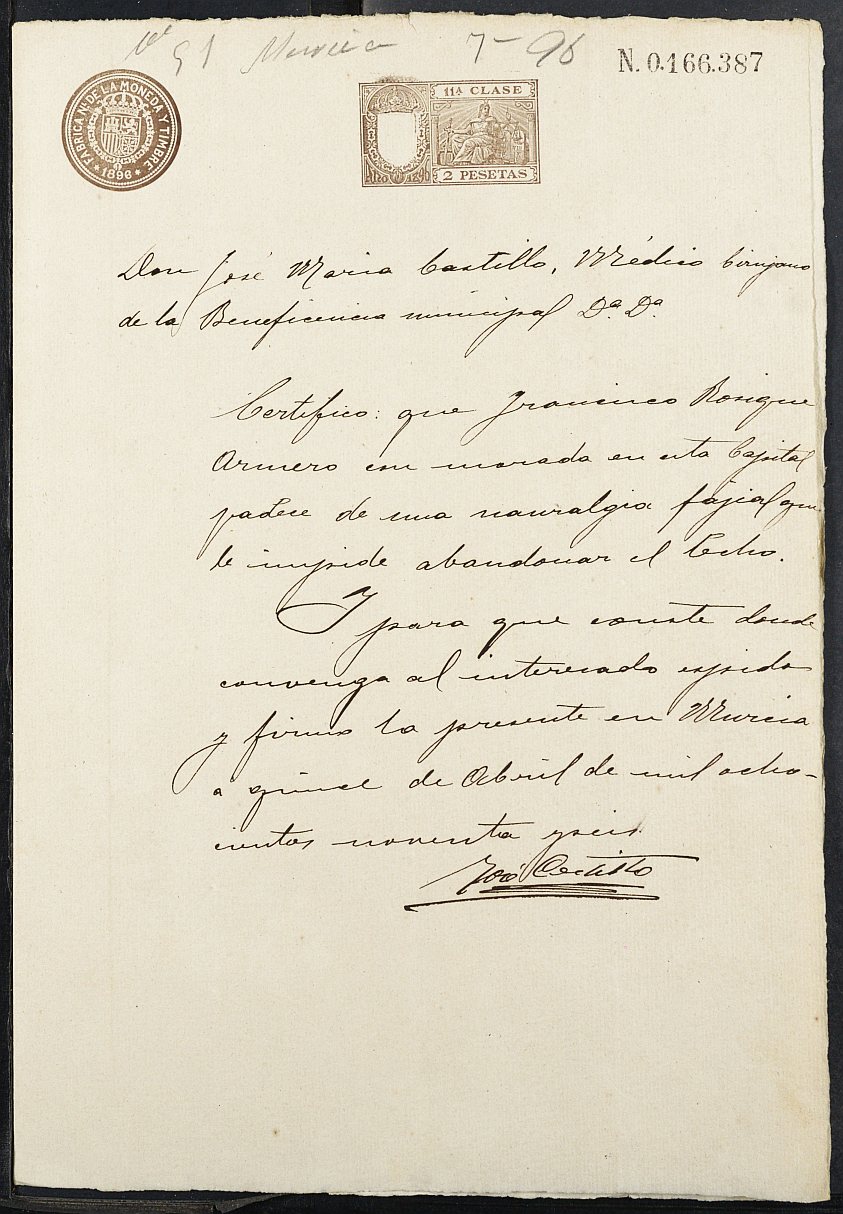 Nº 51 Murcia 7-96
N. 0.166.387
FABRICA Nl. DE LA MONEDA Y TIMBRE
* 1896 *
11ª CLASE
Año 1896
2 PESETAS
Don José Maria Castillo, Médico Cirujano
de la Beneficencia municipal Dª. Dª.
Certifico: que Francisco Rosique
Armero con morada en esta Capital
padece de una nauralgia fajial que
le impide abandonar el lecho.
Y para que conste donde
convenga al interesado espido
y firmo la presente en Murcia
a quince de Abril de mil ocho-
cientos noventa y seis.
José Castillo